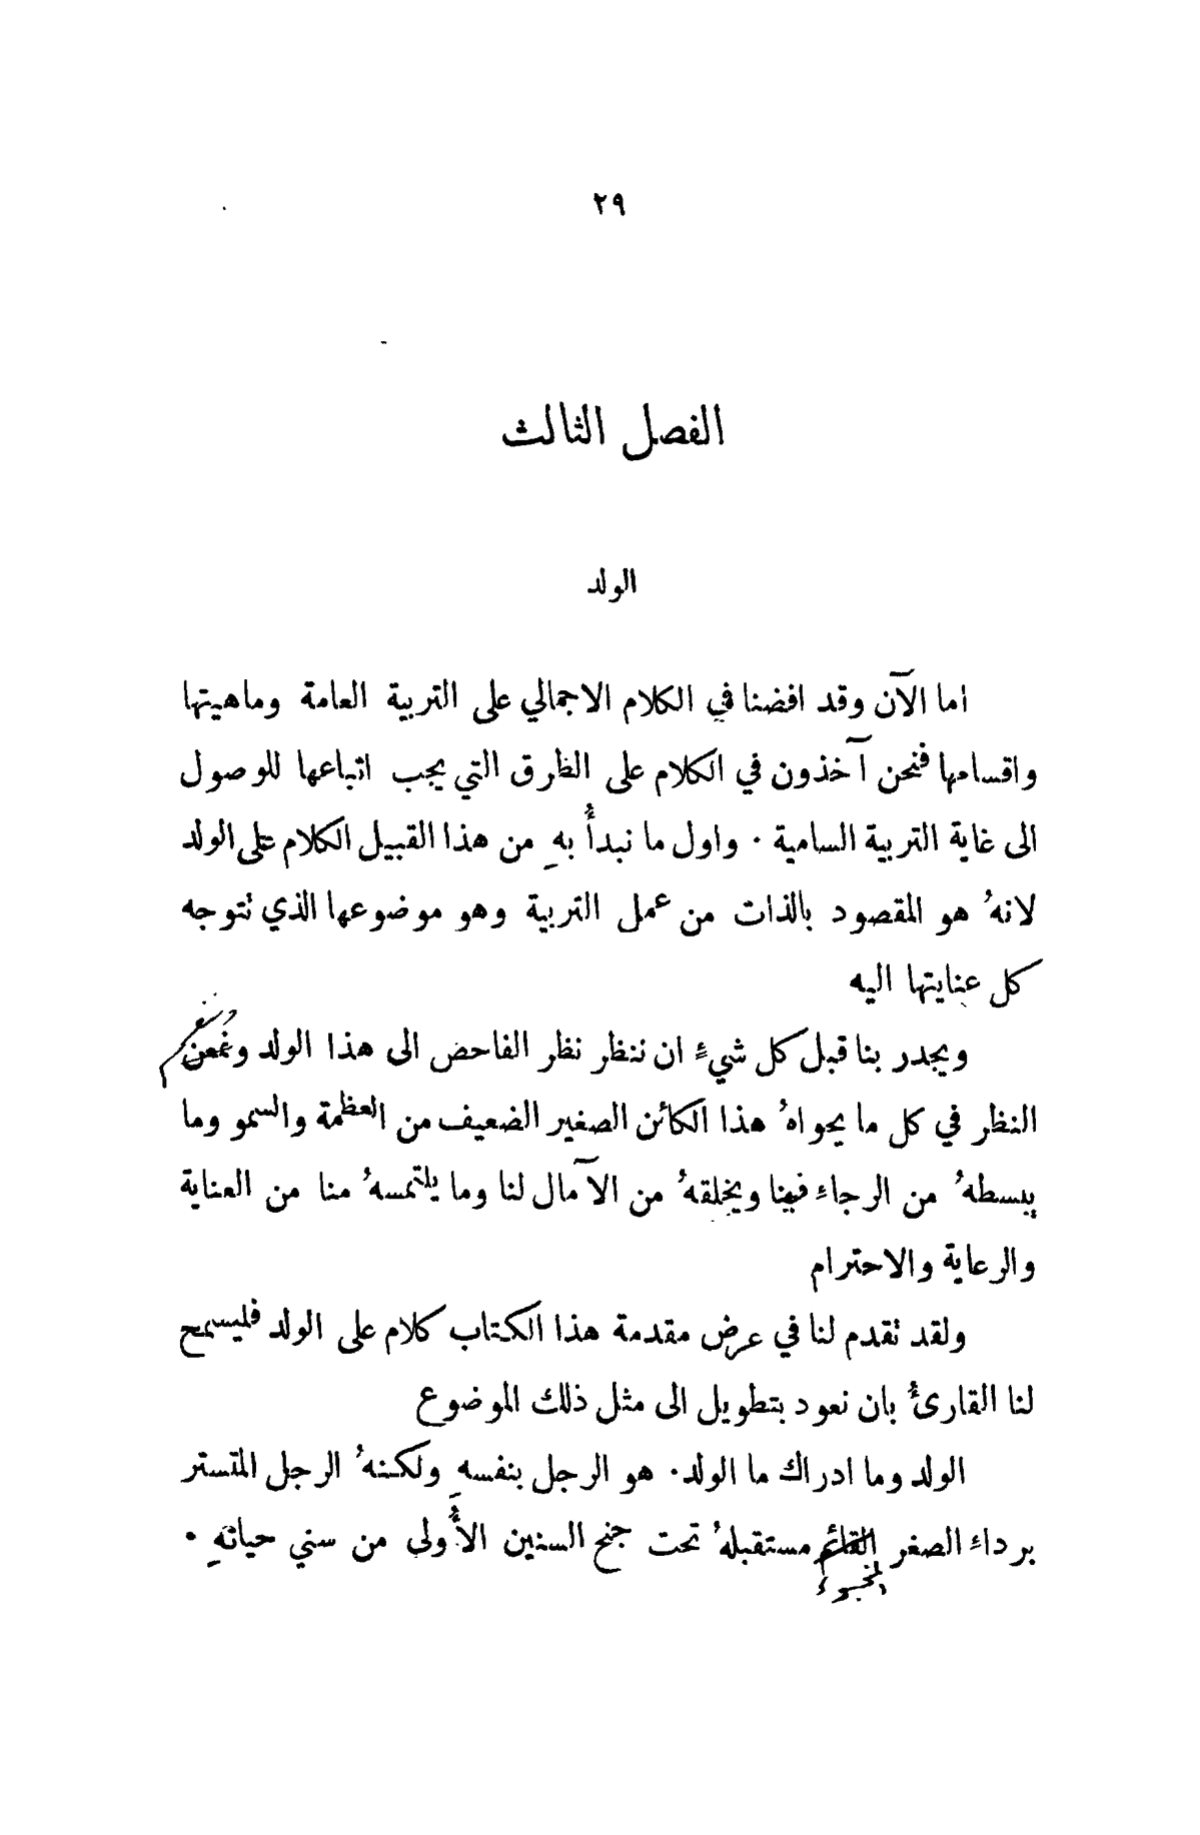 ٢٩
الفصل الثالث
الولد
اما الآن وقد افضنا في الكلام الاجمالي على التربية العامة وماهيتها
واقسامها فنحن آخذون في الكلام على الطرق التي يجب اتباعها للوصول
الى غاية التربية السامية ٠ واول ما نبدأُ بهِ من هذا القبيل الكلام على الولد
لانهُ هو المقصود بالذات من عمل التربية وهو موضوعها الذي تتوجه
كل عنايتها اليه
ويجدر بنا قبل كل شيءٍ ان ننظر نظر الفاحض الى هذا الولد ونمعن
النظر في كل ما يحواهُ هذا الكائن الصغير الضعيف من العظمة والسمو وما
يبسطهُ من الرجاء فينا ويخلقهُ من الآمال لنا وما يلتمسهُ منا من العناية
والرعاية والاحترام
ولقد تقدم لنا في عرض مقدمة هذا الكتاب كلام على الولد فليسمح
لنا القارئُ بان نعود بتطويل الى مثل ذلك الموضوع
الولد وما ادراك ما الولد٠ هو الرجل بنفسهِ ولكنهُ الرجل المتستر
برداء الصغر القائم مستقبلهُ تحت جنح السنين الأُولى من سني حياتهِ ٠
المخبوء